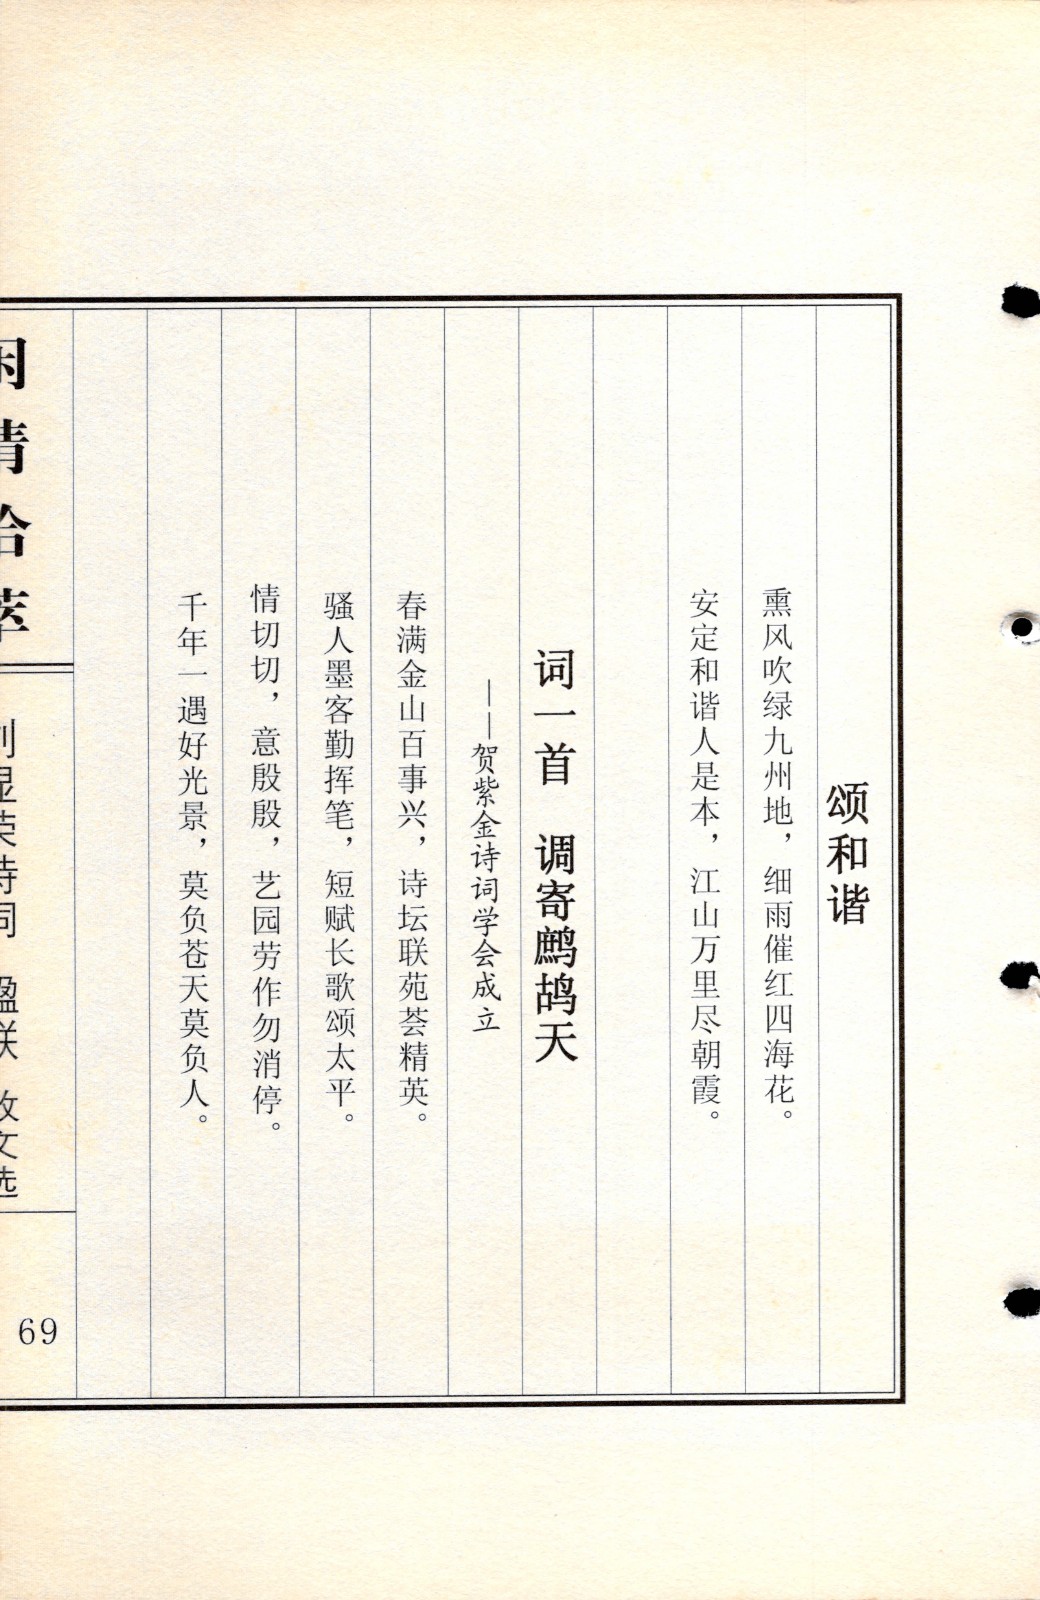 颂和谐
熏风吹绿九州地，细雨催红四海花。
安定和谐人是本，江山万里尽朝霞。
词一首　调寄鹧鸪天
——贺紫金诗词学会成立
春满金山百事兴，诗坛联苑荟精英。
骚人墨客勤挥笔，短赋长歌颂太平。
情切切，意殷殷，艺园劳作勿消停。
千年一遇好光景，莫负苍天莫负人。
情拾萃
显荣诗词　联　文选
69